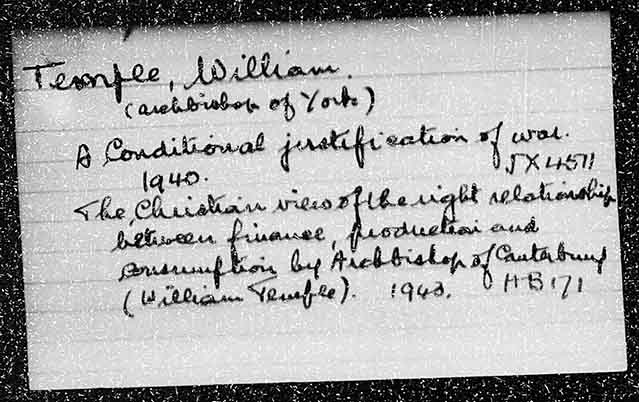 Temple, William.
(Archbishop of York)
A Conditional justification of war.
1940. JX4511
The Christian view of the right relationship
between finance, production and
consumption by Archbishop of Canterbury
(William Temple). 1943. HB171